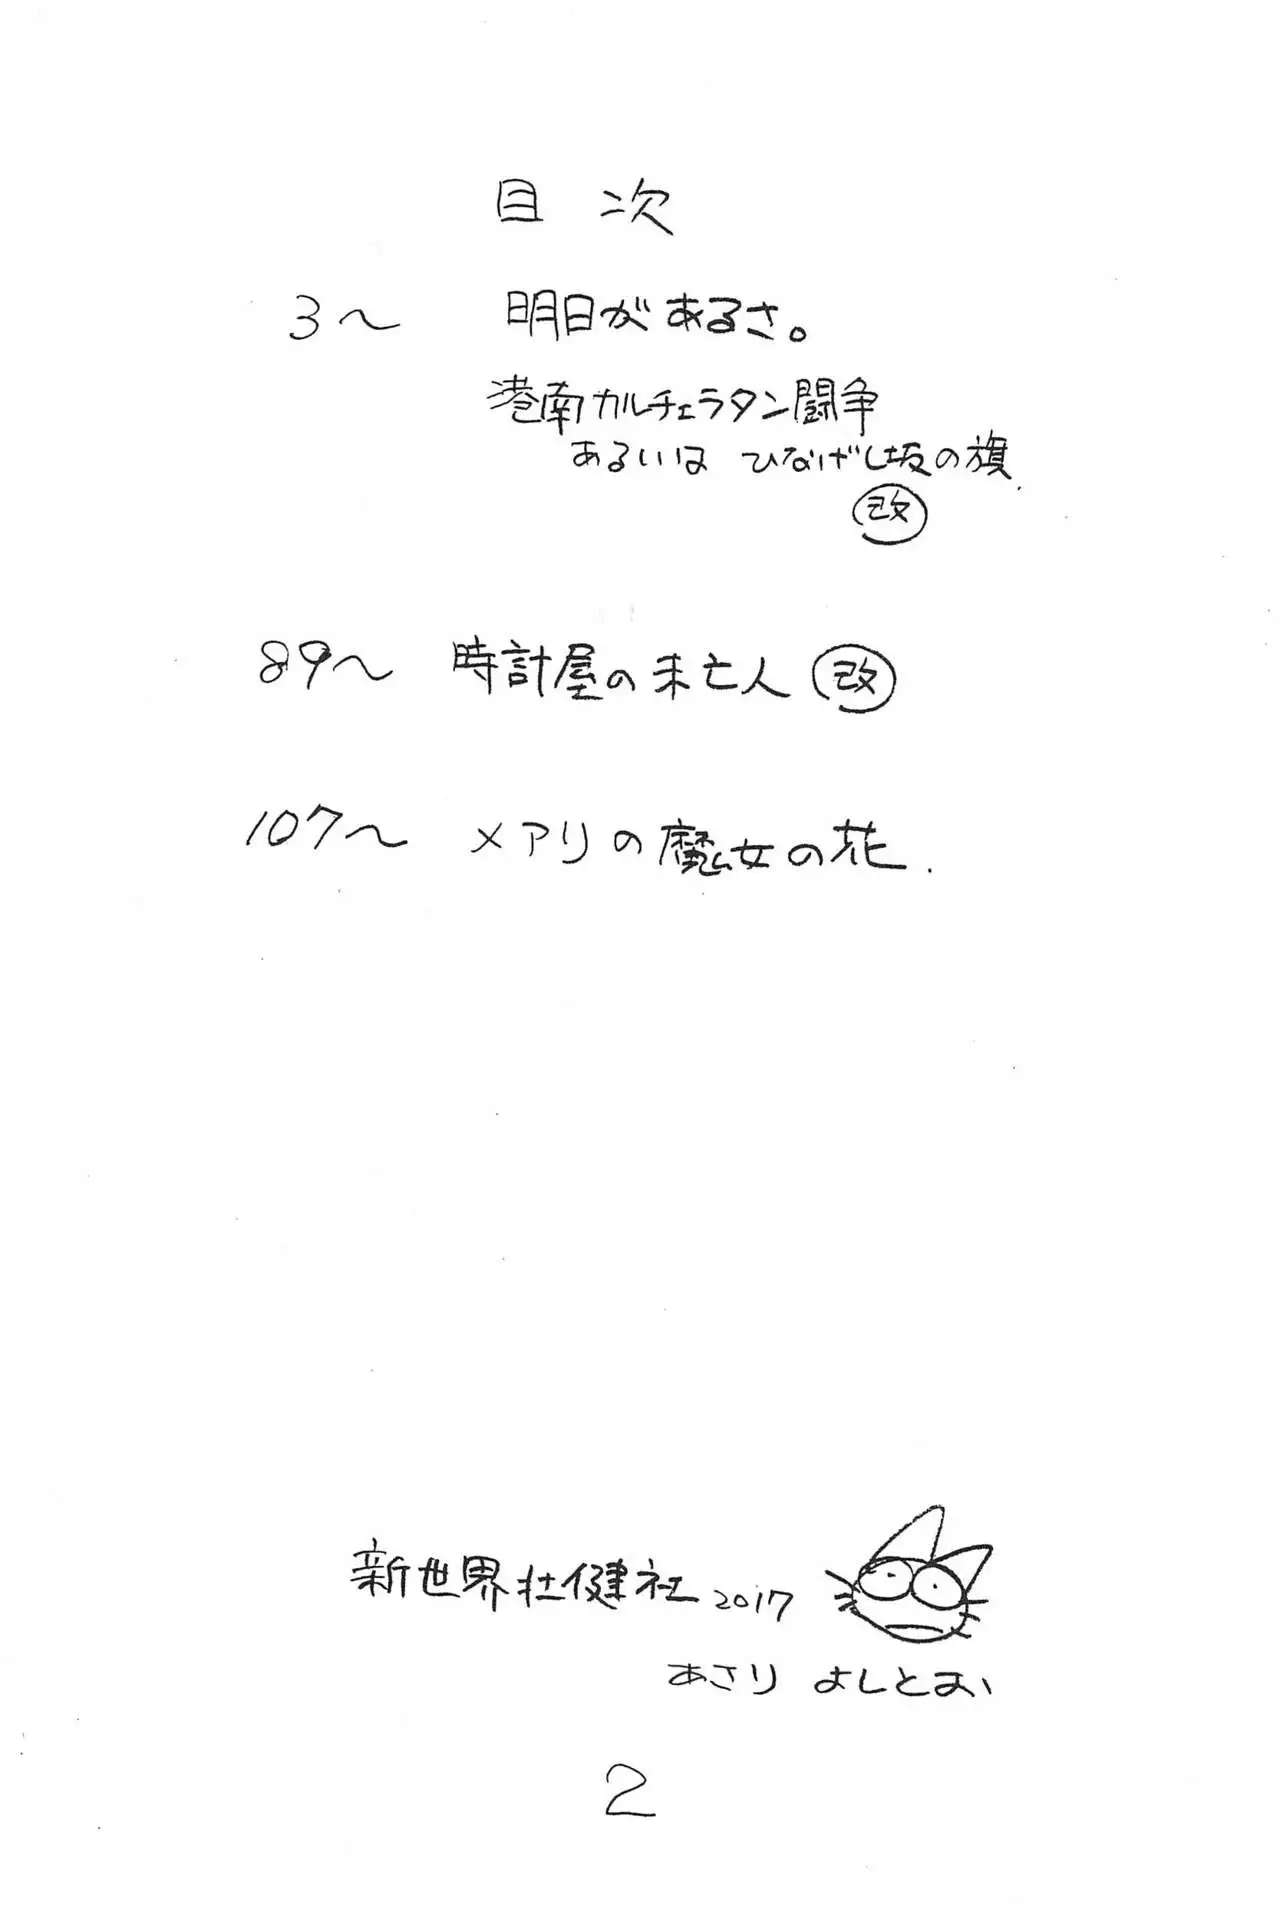 目 次
3〜 明日があるさ。
港南カルチェラタン闘争
あるいは ひなげし坂の旗.
改
89〜 時計屋の未亡人 改
107〜 メアリの魔女の花.
新世界壮健社 2017
あさり よしとおい
2